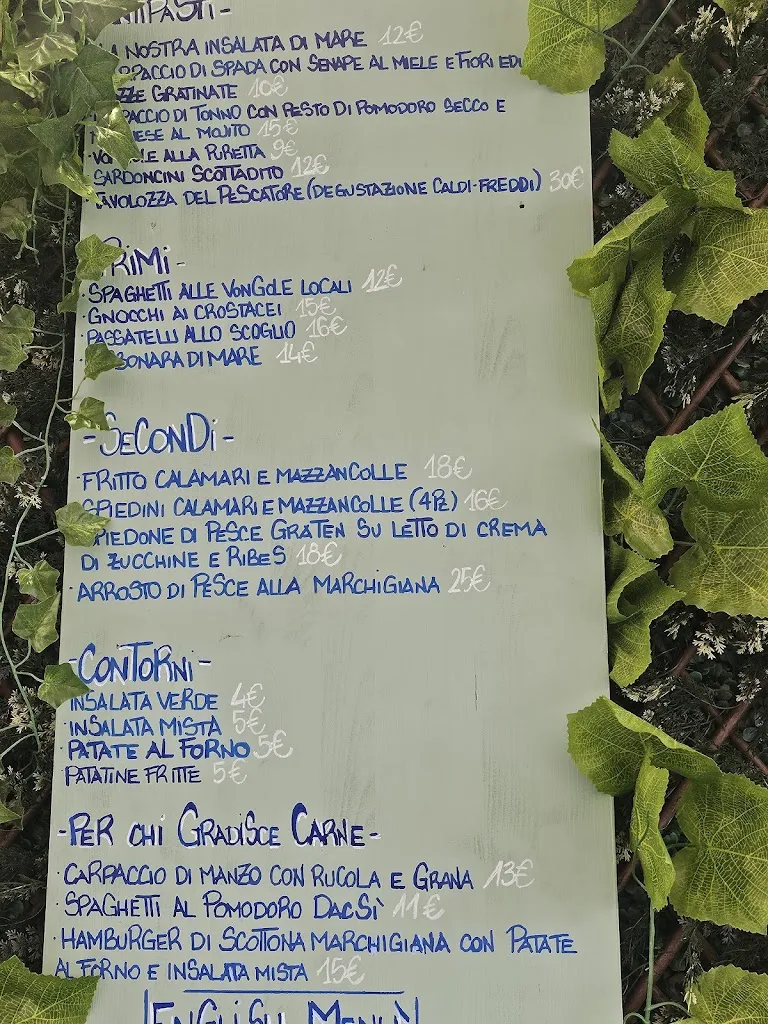 ANTIPASTI-
LA NOSTRA INSALATA DI MARE 12€
CARPACCIO DI SPADA CON SENAPE AL MIELE E FIORI EDU
GRATINATE 10€
CARPACCIO DI TONNO CON PESTO DI POMODORO SECCO E
AL MOJITO 15€
VONGOLE ALLA PURETTA 9€
SARDONCINI SCOTTADITO 12€
TAVOLOZZA DEL PESCATORE (DEGUSTAZIONE CALDI-FREDDI) 30€
PRIMI-
·SPAGHETTI ALLE VONGOLE LOCALI 12€
·GNOCCHI AI CROSTACEI 15€
·PASSATELLI ALLO SCOGLIO 16€
·CARBONARA DI MARE 14€
-SECONDI-
·FRITTO CALAMARI E MAZZANCOLLE 18€
·SPIEDINI CALAMARI E MAZZANCOLLE (4Pz) 16€
·SPIEDONE DI PESCE GRATEN SU LETTO DI CREMA
DI ZUCCHINE E RIBES 18€
·ARROSTO DI PESCE ALLA MARCHIGIANA 25€
-CONTORNI-
·INSALATA VERDE 4€
·INSALATA MISTA 5€
·PATATE AL FORNO 5€
·PATATINE FRITTE 5€
-PER CHI GRADISCE CARNE-
·CARPACCIO DI MANZO CON RUCOLA E GRANA 13€
·SPAGHETTI AL POMODORO DACSÌ 11€
·HAMBURGER DI SCOTTONA MARCHIGIANA CON PATATE
AL FORNO E INSALATA MISTA 15€
ENGLISH MENU